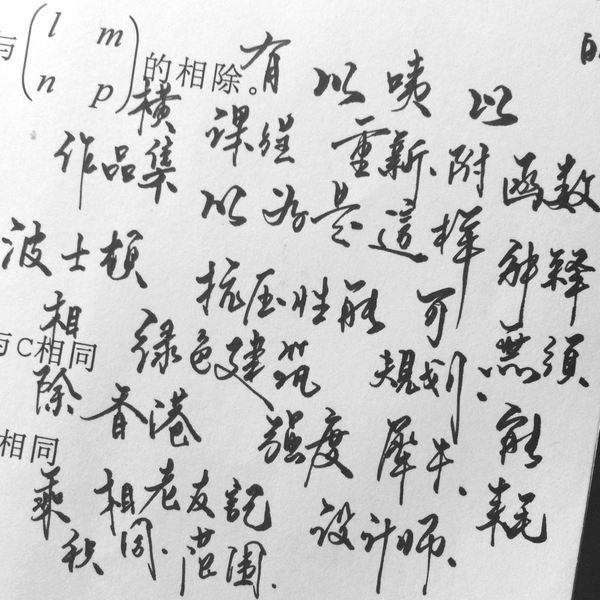 与(l m
n p)的相除。有
以 咦 以
横 课程 重新 附 函数
作品集 以为 是 這样
波士顿 抗压性能 可 种释
相 绿色建筑 規划、無須
与C相同
除 香港 强度 犀牛、能
相同
乘 相 老友記 设计师、耗
积 同. 范围.